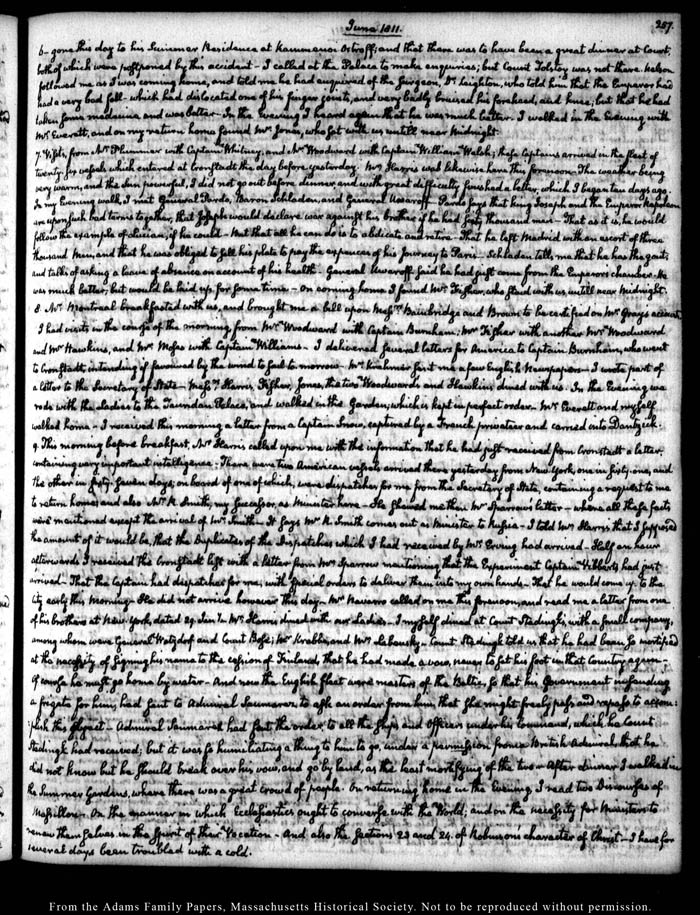 June 1811.
257.
6— gone this day to his Summer Residence at Kammenoi Ostroff; and that there was to have been a great dinner at Court,
both of which were postponed by this accident— I called at the Palace to make enquiries; but Count Tolstoy was not there. Nelson
followed me as I was coming home, and told me he had enquired of the Surgeon, Dr. Leighton, who told him that the Emperor had
had a very bad fall— which had dislocated one of his finger joints, and very badly bruised his forehead, and nose; but that he had
taken some medicine and was better— In the Evening I heard again that he was much better. I walked in the Evening with
Mr. Everett, and on my return home found Mr. Jones, who sat with us untill near Midnight.
7. Visits, from Mr. Plummer with Captain Whitney, and Mr. Woodward with Captain William Walsh; these Captains arrived in the fleet of
twenty-six vessels which entered at Cronstadt the day before yesterday. Mr. Harris was likewise here this forenoon— The weather being
very warm, and the sun powerful, I did not go out before dinner and with great difficulty finished a letter, which I began ten days ago—
In my evening walk, I met General Pardo, Baron Schladen, and General Uwaroff— Pardo says that king Joseph and the Emperor Napoleon
are upon such bad terms together, that Joseph would declare war against his brother if he had sixty thousand men— That as it is, he would
follow the example of Lucien, if he could— But that all he can do is to abdicate and retire— That he left Madrid with an escort of three
thousand Men, and that he was obliged to sell his plate to pay the expences of his Journey to Paris— Schladen tells me that he has the gout;
and talks of asking a leave of absence on account of his health. General Uwaroff said he had just come from the Emperor's chamber— He
was much better, but would be laid up for some time— on coming home I found Mr. Fisher, who staid with us untill near Midnight.
8. Mr. Montreal breakfasted with us, and brought me a bill upon Messrs. Bainbridge and Brown to be certified on Mr. Gray's account.
I had visits in the course of the morning, from Mr. Woodward with Captain Burnham; Mr. Fisher with another Mr. Woodward
and Mr. Hawkins, and Mr. Moses with Captain Williams— I delivered several letters for America to Captain Burnham, who went
to Cronstadt intending if favoured by the wind to sail to-morrow— Mr. Krehmer sent me a few English Newspapers— I wrote part of
a letter to the Secretary of State— Messrs. Harris, Fisher, Jones, the two Woodwards and Hawkins, dined with us. In the Evening we
rode with the Ladies to the Taurida Palace, and walked in the Garden, which is kept in perfect order— Mr. Everett and myself
walked home— I received this morning a letter from a Captain Snow, captured by a French privateer and carried into Dantzick.
9. This morning before breakfast, Mr. Harris called upon me with the information that he had just received from Cronstadt a letter,
containing very important intelligence— There were two American vessels arrived there yesterday from New York, one in forty-one, and
the other in forty-seven days; on board of one of which, were dispatches for me from the Secretary of State, containing a request to me
to return home; and also Mr. R. Smith, my successor, as Minister here— He shewed me then Mr. Sparrow's letter— where all these facts
were mentioned except the arrival of Mr. Smith— It says Mr. R. Smith comes out as Minister to Russia— I told Mr. Harris that I supposed
the amount of it would be, that the duplicates of the Dispatches which I had received by Mr. Erving had arrived— Half an hour
afterwards I received the Cronstadt list with a letter from Mr. Sparrow mentioning that the Experiment Captain Vibberts had just
arrived— That the Captain had dispatches for me, with special orders to deliver them into my own hands— That he would come up to the
city early this morning— He did not arrive however this day— Mr. Navarro called on me this forenoon, and read me a letter from one
of his brothers at New-York, dated 29. Jan'y. Mr. Harris dined with our Ladies— I myself dined at Count Stedingk's, with a small company,
among whom were General Watzdorf and Count Bose; Mr. Krabbe, and Mr. Labensky— Count Stedingk told us that he had been so mortified
at the necessity of signing his name to the cession of Finland, that he had made a vow, never to set his foot in that Country again—
Of course he must go home by water— And now the English fleet were masters of the Baltic, so that his Government in sending
a frigate for him, had sent to Admiral Saumarez, to ask an order from him, that she might freely pass and repass to accom:
plish this object— Admiral Saumarez had sent the order to all the ships and Officers under his command, which he Count
Stedingk had received; but it was so humiliating a thing to him to go, under a permission from a British Admiral, that he
did not know but he should break over his vow, and go by land, as the least mortifying of the two— After dinner I walked in
the Summer Gardens, where there was a great crowd of people. On returning home in the Evening, I read two Discourses of
Massillon— On the manner in which Ecclesiastics ought to converse with the World; and on the necessity for Ministers to
renew themselves in the Spirit of their Vocation— And also the Sections 23 and 24. of Robinson's character of Christ— I have for
several days been troubled with a cold.
From the Adams Family Papers, Massachusetts Historical Society. Not to be reproduced without permission.